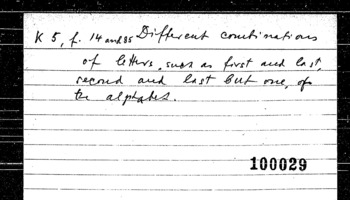 K 5, f. 14 and 85 Different combinations
of letters, such as first and last,
second and last but one, of
the alphabet.
100029